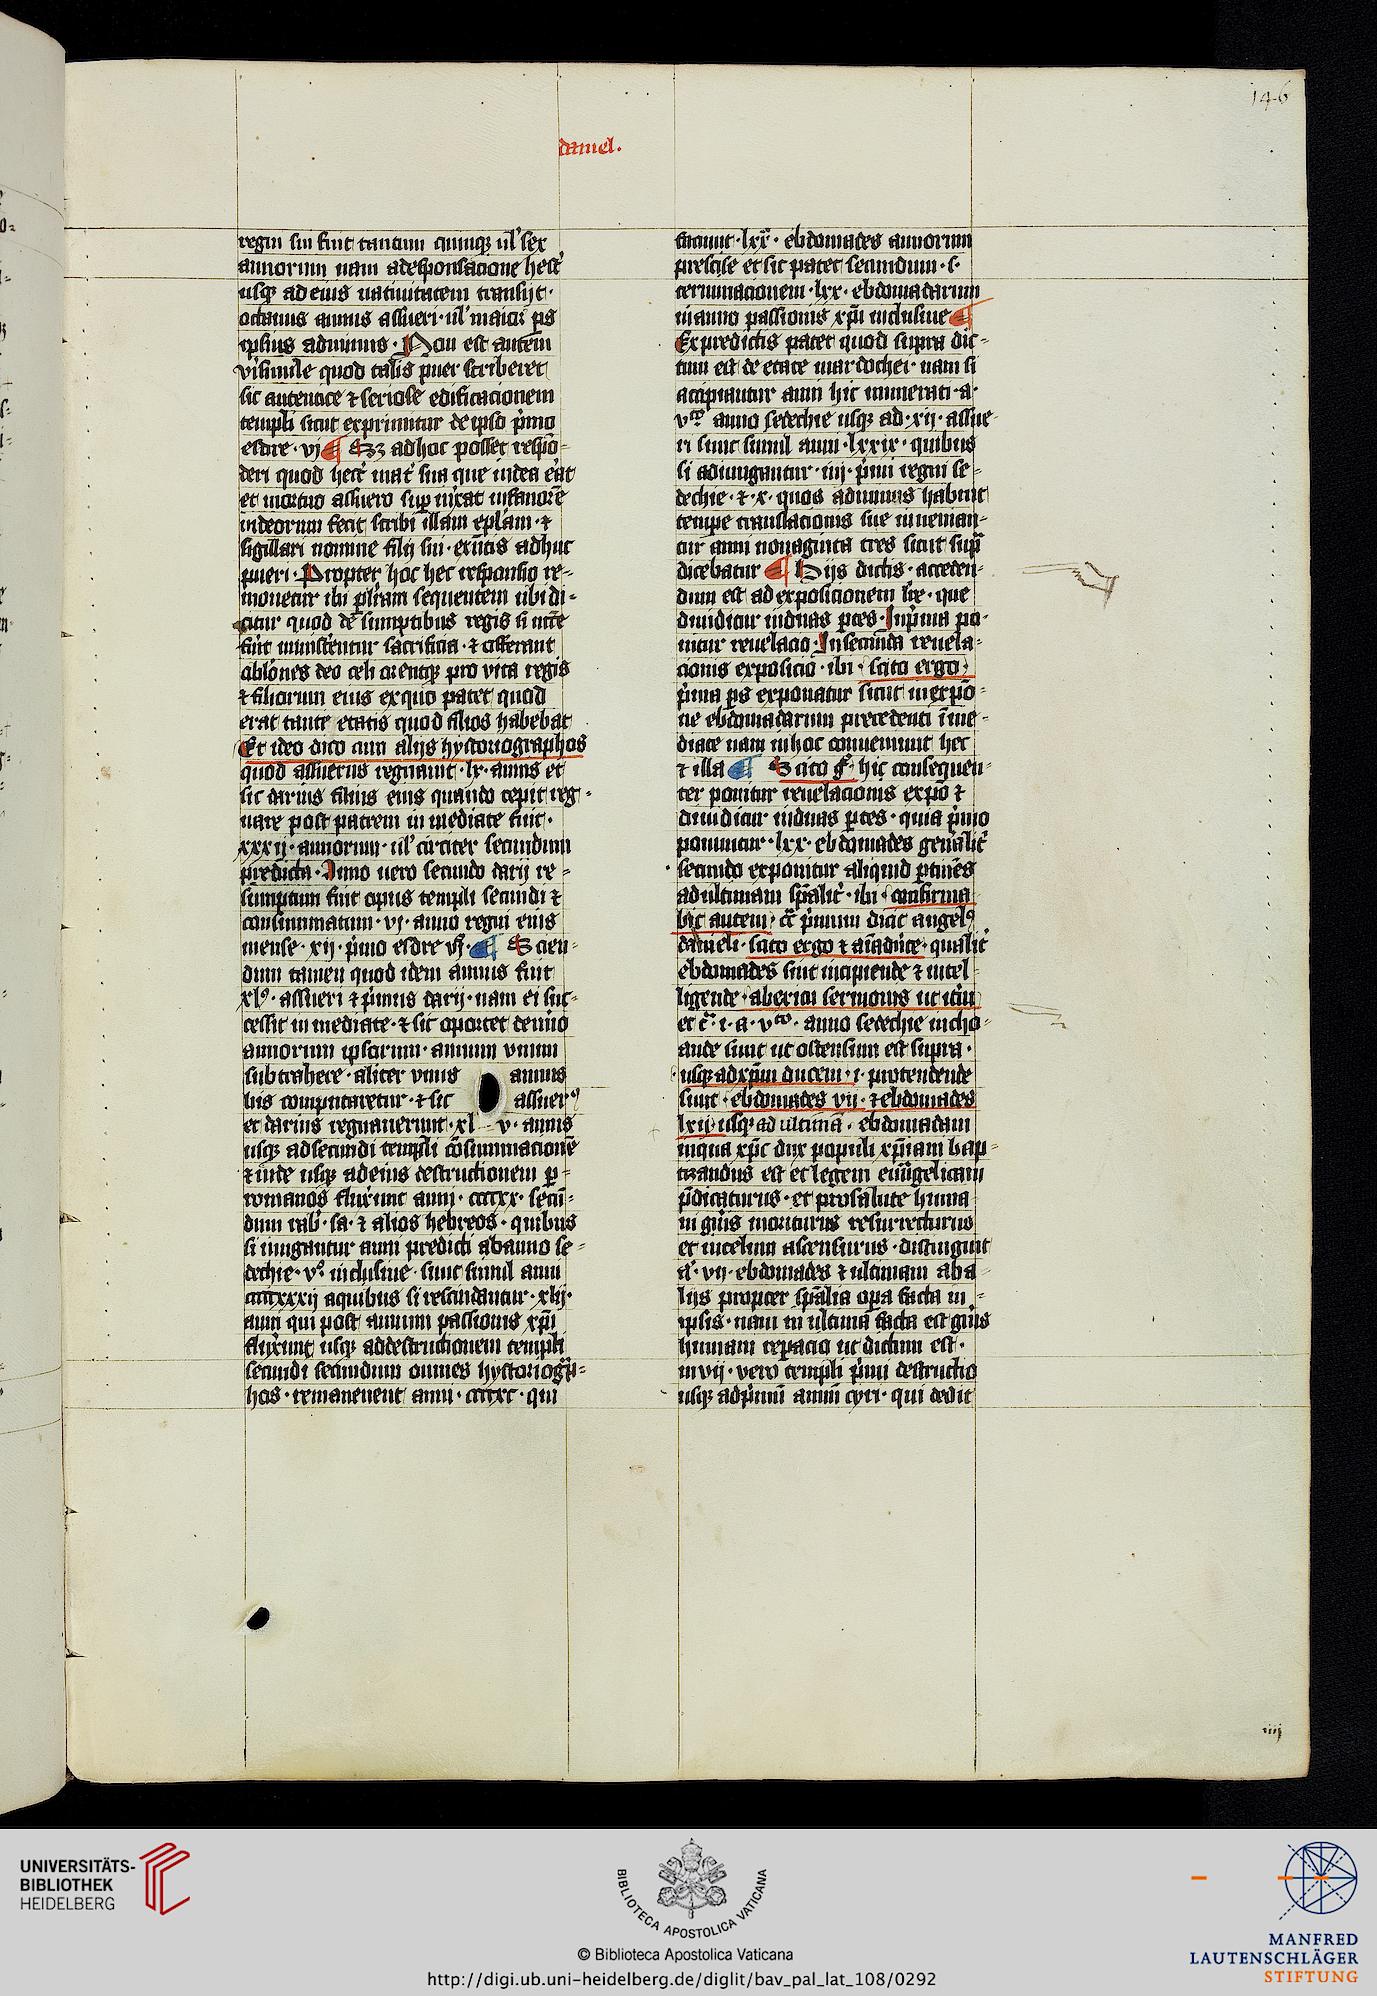 146
daniel.
regni sui fuit tantum quinqꝫ ul' sex
annorum nam a desponsacione hest'
usqꝫ ad eius natiuitatem transijt ·
octauus annus assueri · ul' maior ps
ipsius ad minus · Non est autem
v'isimile quod talis puer scriberet
sic autentice ⁊ seriose edificacionem
templi sicut exprimitur de ipso p'mo
esdre · vj ¶ Sꝫ ad hoc posset respō-
deri quod hest' mat' sua que iudea e'at
et mortuo assuero
iudeorum fecit scribi illam ep̄lam · ⁊
sigillari nomine filij sui · ex'ntis adhuc
pueri · Propter hoc hec responsio re-
mouetur ibi p̱ l'ram sequentem ubi di-
citur quod de sumptibus regis
ministrentur sacrificia · ⁊ offerant
oblōnes deo celi orentqꝫ pro vita regis
⁊ filiorum eius ex quo patet quod
erat tante etatis quod filios habebat
Et ideo dico cum alijs hystoriographos
quod assuerus regnauit · lx · annis et
sic darius filius eius quando cepit reg-
nare post patrem in mediate fuit ·
xxxij · annorum · ul' circiter secundum
predicta · Anno uero secundo darij re-
sumptum fuit opus templi secundi ⁊
consummatum · vj · anno regni eius
mense · xij · p'mo esdre vj · ¶ Scien-
dum tamen quod idem annus fuit
xlꝰ · assueri ⁊ p'mus darij · nam ei suc-
cessit in mediate · ⁊ sic oportet de nu'o
annorum ipsorum · annum vnum
subtrahere · aliter vnus annus
bis computaretur · ⁊ sic assuerꝰ
et darius regnauerunt · xl v · annis
usqꝫ ad secundi templi cōsummacionē
⁊ inde usqꝫ ad eius destructionem p̱
romanos fluxerunt anni · ccccxx · secū-
dum rab' · sa · ⁊ alios hebreos · quibus
si iungantur anni predicti ab anno se-
dechie · vº inclusiue · sunt simul anni
ccccxxxij a quibus si rescindantur · xlij ·
anni qui post annum passionis xp̄i
flux'unt usqꝫ ad destructionem templi
secundi secundum omnes hystoriog'p-
hos · remanenent anni · ccccxc · qui
faciunt · lxx · ebdomades annorum
prescise et sic patet secundum · s ·
terminacionem · lxx · ebdomadarum
in anno passionis xp̄i inclusiue ¶
Ex predictis patet quod supra dic-
tum est de etate mardochei · nam si
accipiantur anni hic numerati · a ·
vᵗᵒ anno sedechie usqꝫ ad · xij · assue-
ri sunt simul anni · lxxix · quibus
si adiungantur · iiij · p'mi regni se-
dechie · ⁊ · x · quos ad minus habuit
tempe translacionis sue inuenian-
tur anni nonaginta tres sicut sup̄
dicebatur ¶ Hijs dictis · acceden-
dum est ad exposicionem l're · que
diuiditur in duas p̱tes · In p'ma po-
nitur reuelacio In secunda reuela-
cionis exposicio · ibi · scito ergo ·
p'ma ps exponatur sicut in expō-
ne ebdomadarum precedenti īme-
diate nam in hoc conueniunt hec
⁊ illa ¶ Scito g° hic consequen-
ter ponitur reuelacionis expō ⁊
diuiditur in duas p̱tes · quia p'mo
ponuntur · lxx · ebdomades genalit'
secundo exponitur aliquid p̱tinēs
ad ultimam sp̄alit' · ibi · confirma
bit autem · c̄c p'mum dicit angelꝰ
danieli · scito ergo ⁊ aīaduerte · qualit'
ebdomades sint incipiende ⁊ intel-
ligende · ab exitu sermonis ut it'um
et c̄ · i · a · vᵗᵒ · anno sedechie incho-
ande sunt ut ostensum est supra ·
usqꝫ ad xp̄m ducem · i · protendende
sunt · ebdomades vij · ⁊ ebdomades
lxij · usqꝫ ad ultimā · ebdomadam
in qua xp̄c dux populi xp̄iani bap-
tizandus est et legem euūgelicam
p̄dicaturus · et pro salute huma
ni gn̄is moriturus resurrecturus
et in celum ascensurus · distinguit
a' · vij · ebdomades ⁊ ultimam aba-
lijs propter sp̄alia opa facta in
ipsis · nam in ultima facta est gn̄is
humani reparacio ut dictum est ·
in vij · vero templi p'mi destructio
usqꝫ ad p'mū annū cyri · qui dedit
iiij
UNIVERSITÄTS-
BIBLIOTHEK
HEIDELBERG
BIBLIOTECA APOSTOLICA VATICANA
© Biblioteca Apostolica Vaticana
http://digi.ub.uni-heidelberg.de/diglit/bav_pal_lat_108/0292
MANFRED
LAUTENSCHLÄGER
STIFTUNG